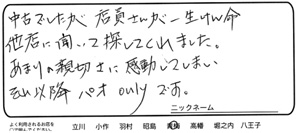 中古でしたが 店員さんが一生けん命
他店に聞いて探してくれました。
あまりの親切さに感動してしまい
それ以降 パオ only です。
ニックネーム
よく利用されるお店を
立川 小作 羽村 昭島 高幡 堀之内 八王子